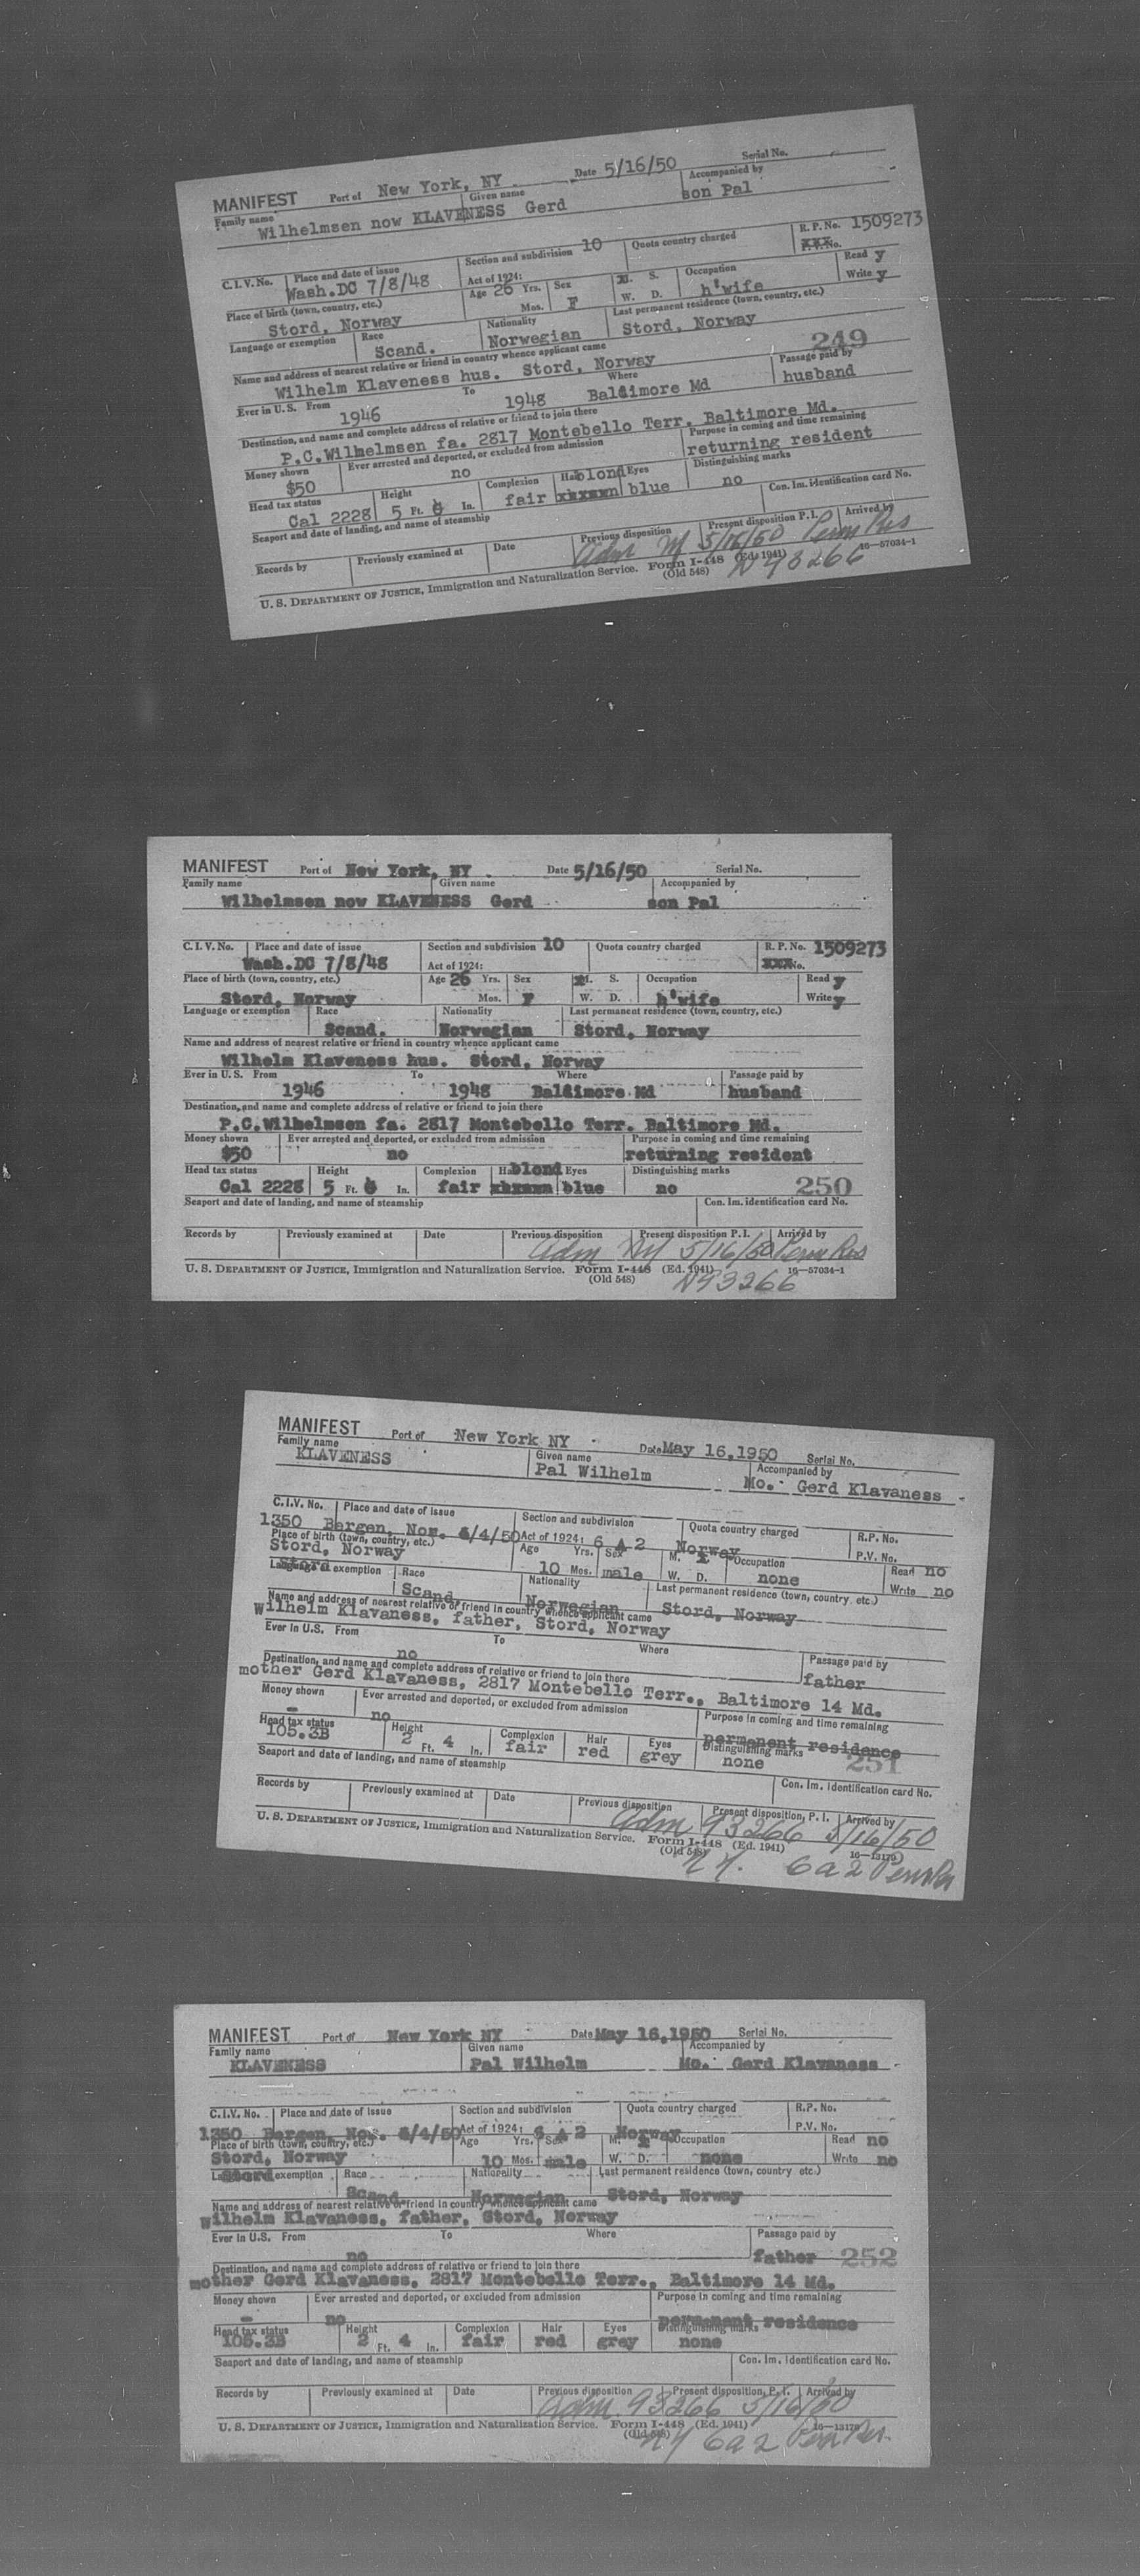 MANIFEST Port of New York, NY Date 5/16/50 Serial No.
Family name Given name Accompanied by
Wilhelmsen now KLAVENESS Gerd son Pal
C.I.V. No. Place and date of issue Section and subdivision 10 Quota country charged R. P. No. 1509273
Wash.DC 7/8/48 Act of 1924: No.
Place of birth (town, country, etc.) Age 26 Yrs. Sex M. S. Occupation Read y
Stord, Norway Mos. F W. D. h'wife Write y
Language or exemption Race Nationality Last permanent residence (town, country, etc.)
Scand. Norwegian Stord, Norway
Name and address of nearest relative or friend in country whence applicant came 249
Wilhelm Klaveness hus. Stord, Norway
Ever in U.S. From To Where Passage paid by
1946 1948 Baltimore Md husband
Destination, and name and complete address of relative or friend to join there
P.C.Wilhelmsen fa. 2817 Montebello Terr. Baltimore Md.
Money shown Ever arrested and deported, or excluded from admission Purpose in coming and time remaining
$50 no returning resident
Head tax status Height Complexion Hair blond Eyes Distinguishing marks
Cal 2228 5 Ft. 6 In. fair blue no Con. Im. identification card No.
Seaport and date of landing, and name of steamship
Records by Previously examined at Date Previous disposition Present disposition P.I. Arrived by
Adm 5/16/50 Perm Res
U. S. DEPARTMENT OF JUSTICE, Immigration and Naturalization Service. Form I-448 (Ed. 1941) 16—57034-1
(Old 548) 93266
MANIFEST Port of New York, NY Date 5/16/50 Serial No.
Family name Given name Accompanied by
Wilhelmsen now KLAVENESS Gerd son Pal
C.I.V. No. Place and date of issue Section and subdivision 10 Quota country charged R. P. No. 1509273
Wash.DC 7/8/48 Act of 1924: No.
Place of birth (town, country, etc.) Age 26 Yrs. Sex M. S. Occupation Read y
Stord, Norway Mos. F W. D. h'wife Write y
Language or exemption Race Nationality Last permanent residence (town, country, etc.)
Scand. Norwegian Stord, Norway
Name and address of nearest relative or friend in country whence applicant came
Wilhelm Klaveness hus. Stord, Norway
Ever in U.S. From To Where Passage paid by
1946 1948 Baltimore Md husband
Destination, and name and complete address of relative or friend to join there
P.C.Wilhelmsen fa. 2817 Montebello Terr. Baltimore Md.
Money shown Ever arrested and deported, or excluded from admission Purpose in coming and time remaining
$50 no returning resident
Head tax status Height Complexion Hair blond Eyes Distinguishing marks
Cal 2228 5 Ft. 6 In. fair blue no 250
Seaport and date of landing, and name of steamship Con. Im. identification card No.
Records by Previously examined at Date Previous disposition Present disposition P.I. Arrived by
Adm NY 5/16/50 Perm Res
U. S. DEPARTMENT OF JUSTICE, Immigration and Naturalization Service. Form I-448 (Ed. 1941) 16—57034-1
(Old 548) 93266
MANIFEST Port of New York NY Date May 16,1950 Serial No.
Family name Given name Accompanied by
KLAVENESS Pal Wilhelm Mo. Gerd Klavaness
C.I.V. No. Place and date of issue Section and subdivision Quota country charged R.P. No.
1350 Bergen, Nor. 4/50 Act of 1924: 6 A 2 Norway P.V. No.
Place of birth (town, country, etc.) Age Yrs. Sex M. Occupation Read no
Stord, Norway 10 Mos. male W. D. none Write no
Language or exemption Race Nationality Last permanent residence (town, country etc.)
Scand. Norwegian Stord, Norway
Name and address of nearest relative or friend in country whence applicant came
Wilhelm Klavaness, father, Stord, Norway
Ever in U.S. From To Where Passage paid by
no father
Destination, and name and complete address of relative or friend to join there
mother Gerd Klavaness, 2817 Montebello Terr., Baltimore 14 Md.
Money shown Ever arrested and deported, or excluded from admission Purpose in coming and time remaining
- no permanent residence
Head tax status Height Complexion Hair Eyes Distinguishing marks 251
105.3B 2 Ft. 4 In. fair red grey none
Seaport and date of landing, and name of steamship Con. Im. Identification card No.
Records by Previously examined at Date Previous disposition Present disposition, P. I. Arrived by
Adm 93266 5/16/50
U. S. DEPARTMENT OF JUSTICE, Immigration and Naturalization Service. Form I-448 (Ed. 1941) 16—13179
(Old 548) N.Y. 6a2 Perm Res
MANIFEST Port of New York NY Date May 16,1950 Serial No.
Family name Given name Accompanied by
KLAVENESS Pal Wilhelm Mo. Gerd Klavaness
C.I.V. No. Place and date of issue Section and subdivision Quota country charged R.P. No.
1350 Bergen, Nor. 4/50 Act of 1924: 6 A 2 Norway P.V. No.
Place of birth (town, country, etc.) Age Yrs. Sex M. Occupation Read no
Stord, Norway 10 Mos. male W. D. none Write no
Language or exemption Race Nationality Last permanent residence (town, country etc.)
Scand. Norwegian Stord, Norway
Name and address of nearest relative or friend in country whence applicant came
Wilhelm Klavaness, father, Stord, Norway
Ever in U.S. From To Where Passage paid by
no father 252
Destination, and name and complete address of relative or friend to join there
mother Gerd Klavaness, 2817 Montebello Terr., Baltimore 14 Md.
Money shown Ever arrested and deported, or excluded from admission Purpose in coming and time remaining
- no permanent residence
Head tax status Height Complexion Hair Eyes Distinguishing marks
105.3B 2 Ft. 4 In. fair red grey none
Seaport and date of landing, and name of steamship Con. Im. Identification card No.
Records by Previously examined at Date Previous disposition Present disposition, P. I. Arrived by
Adm 93266 5/16/50
U. S. DEPARTMENT OF JUSTICE, Immigration and Naturalization Service. Form I-448 (Ed. 1941) 16—13179
(Old 548) NY 6a2 Perm Res.